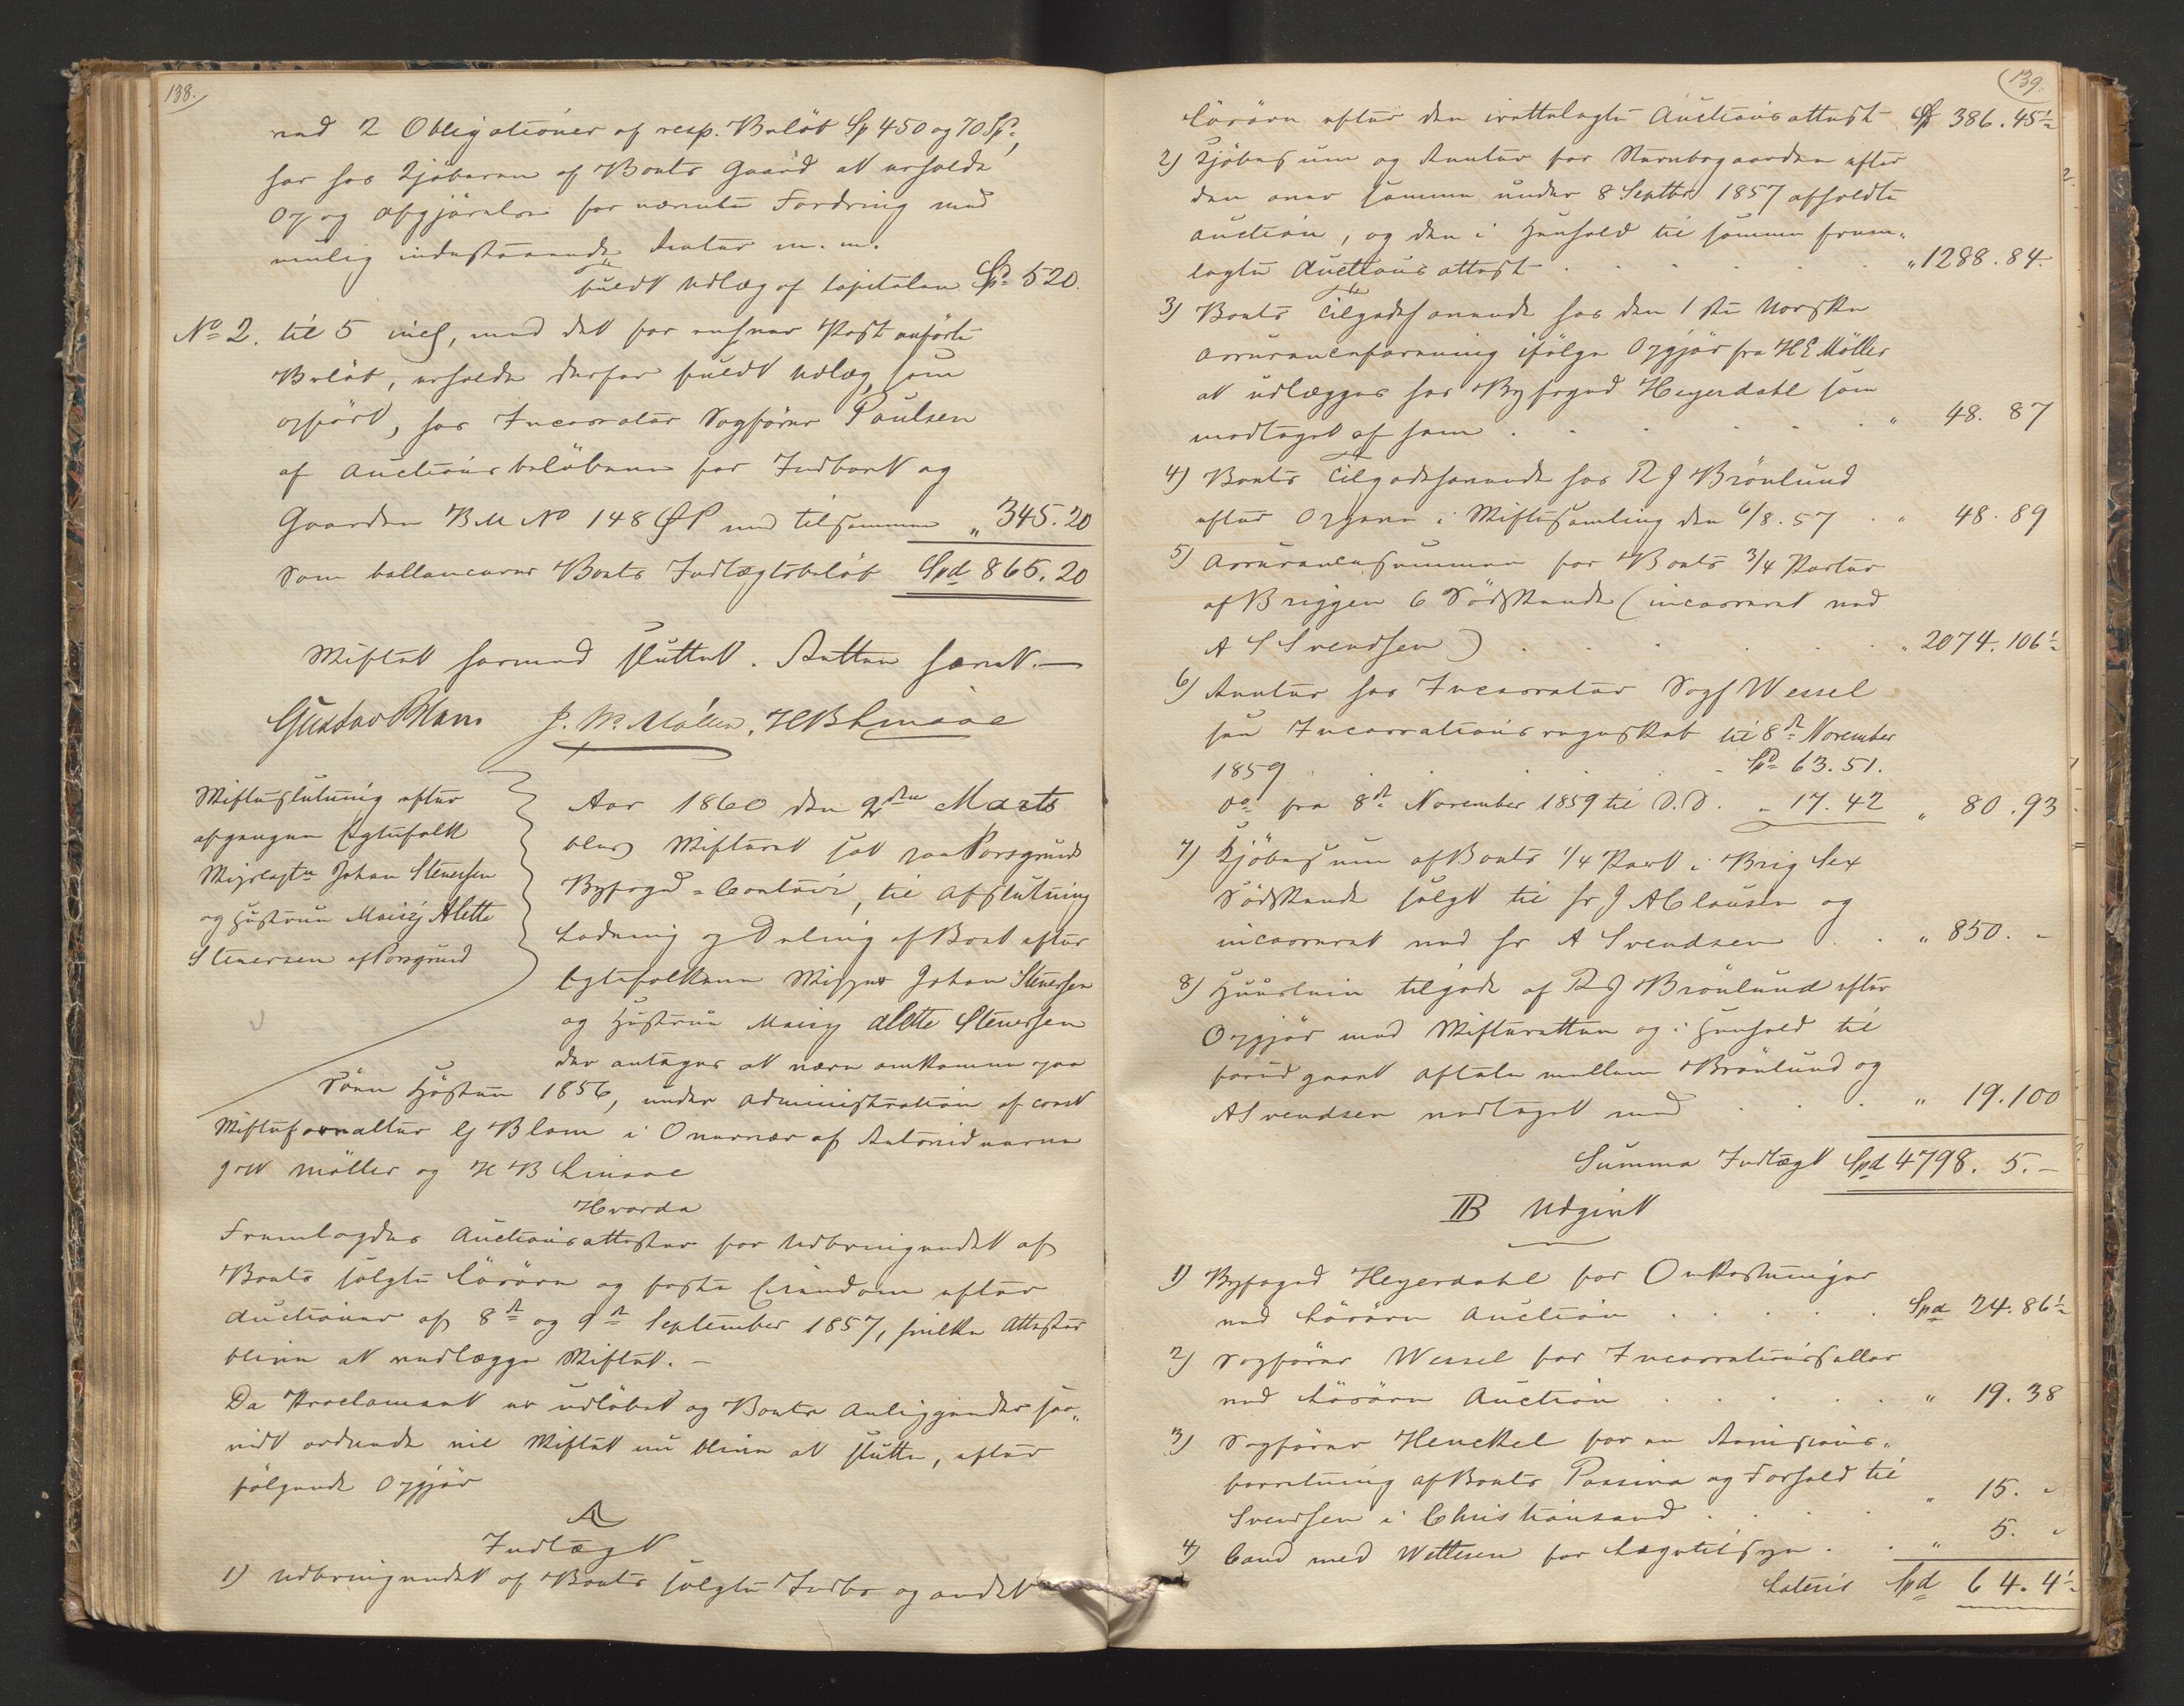 138.
ved 2 Obligationer af resp. Beløb Sp 450 og 70 Spd,
har hos Kjøberen af Boets Gaard at erholde
Op og Afgjørelse for nævnte Fordring med
mulig indestaaende Renter m. m.
fuldt Udlæg af Capitalen Spd 520.
No 2. til 5 incl, med det for enhver Post anførte
Beløb, erholde derfor fuldt Udlæg, som
opført, hos Incassator Sagfører Paulsen
af Auctionsbeløbene for Indboet og
Gaarden BM No 148 ØP med tilsammen " 345.20
Som ballancerer Boets Indtægtsbeløb Spd 865.20
Skiftet hermed sluttet. Retten hævet.—
Gustav Blom J. W. Møller, H B Limaae
Skifteslutning efter
afgangne Egtefolk
Skipscapt. Johan Stenersen
og Hustrue Maisy Alette
Stenersen af Porsgrund
Aar 1860 den 2den Marts
blev Skifteret sat paa Porsgrunds
Byfogd-Contoir, til Afslutning
Lodning og Deling af Boet efter
Egtefolkene Skipper Johan Stenersen
og Hustrue Maisy Alette Stenersen
der antages at være omkommen paa
Søen Høsten 1856, under Administration af const
Skifteforvalter G Blom i Overvær af Retsvidnerne
J W Møller og H B Limaae
Hvorda
Fremlagdes Auctionsattester for Udbringendet af
Boets solgte Løsøre og faste Eiendom efter
Auctioner af 8de og 9de September 1857, hvilke Attester
blive at vedlægge Skiftet. —
Da Proclamaet er udløbet og Boets Anliggender for„
vidt ordnede vil Skiftet nu blive at slutte, efter
følgende Opgjør
A
Indtægt
1) Udbringendet af Boets solgte Indbo og andet
139.
Løsøre efter den irettelagte Auctionsattest Spd 386.45½
2) Kjøbesum og Renter for Stervbogaarden efter
den over samme under 8 Septbr 1857 afholdte
Auction, og den i Henhold til samme frem„
lagte Auctionsattest . . . . . " 1288.84.
3) Boets Tilgodehavende hos den 1ste Norske
Assuranceforening ifølge Opgjør fra H E Møller
at udlægges hos Byfoged Heyerdahl som
modtaget af ham . . . . . " 48. 87
4) Boets Tilgodehavende hos R J Brönlund
efter Opgave i Skiftesamling den 6/8. 57 . " 48. 89
5) Assurancesummen for Boets 3/4 Parter
af Briggen 6 Sødskende (incasseret ved
A S Svendsen) . . . . . " 2074.106½
6) Renter hos Incassator Sagf Wessel
hans Incassationsregnskab til 8de November
1859 . . . . . Spd 63.51.
do fra 8de November 1859 til D.D. " 17.42 " 80.93
7) Kjøbesum af Boets 1/4 Part i Brig Sex
Sødskende solgt til Hr J A Clausen og
incasseret ved Hr A Svendsen . . " 850. "
8) Huusleie tilgode af R J Brönlund efter
Opgjør med Skifteretten og i Henhold til
forudgaaet Aftale mellem Brönlund og
A Svendsen modtaget med . . . " 19.100
Summa Indtægt Spd 4798. 5.—
B Udgivt
1) Byfoged Heyerdahl for Omkostninger
ved Løsøre Auction . . . . . Spd 24.86½
2) Sagfører Wessel for Incassationssallær
ved Løsøre Auction . . . . . " 19.38
3) Sagfører Henckel for en
forretning af Boets Passiva og Forhold til
Svendsen i Christiansand . . . " 15. "
4) Cand med Wettesen for Lægetilsyn . . " 5. "
Lateris Spd 64.4½